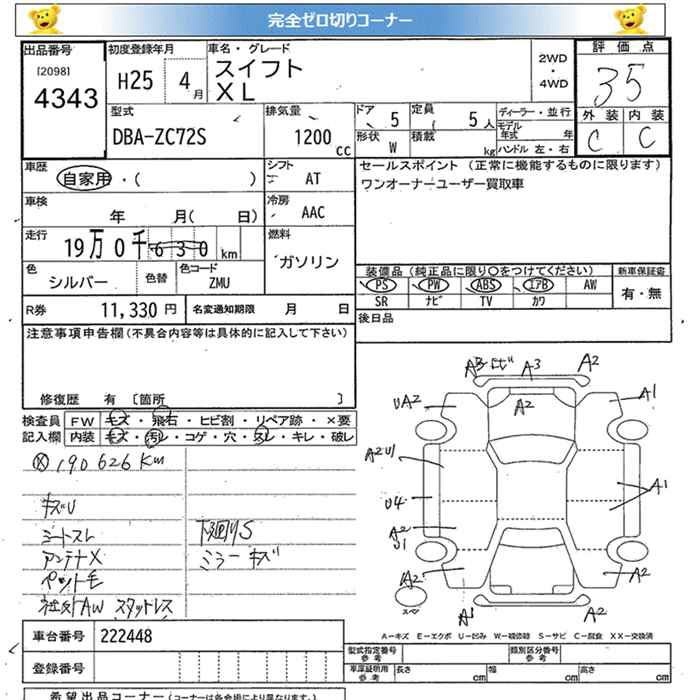 完全ゼロ切りコーナー
出品番号 初度登録年月 車名・グレード 2WD・4WD 評価点
[2098] 4343 H25 4月 スイフト XL 35
外装 内装
C C
型式 排気量 ドア 定員 ディーラー・並行
DBA-ZC72S 1200cc 5 5人 モデル年式 年
形状 W 積載 kg ハンドル 左・右
車歴 シフト セールスポイント (正常に機能するものに限ります)
自家用・( ) AT ワンオーナーユーザー買取車
車検 冷房
年 月( 日) AAC
走行 燃料
19万0千630km ガソリン
色 シルバー 色替 色コード ZMU
装備品 (純正品に限り〇をつけてください) 新車保証書
PS PW ABS エアB AW 有・無
SR ナビ TV カワ
R券 11,330円 名変通知期限 月 日
後日品
注意事項申告欄(不具合内容等は具体的に記入して下さい)
修復歴 有 〔箇所 〕
検査員 FW キズ・飛石・ヒビ割・リペア跡・×要
記入欄 内装 キズ・汚レ・コゲ・穴・スレ・キレ・破レ
190626Km
キズU
シートスレ 下廻りS
アンテナX ミラーキズ
ペット毛
社外AW スタッドレス
A3 A2
UA2 A2 A1
A2 U1
U4 A1
A2
U1
A2 A2
スペア
A1 A2
A-キズ E-エクボ U-凹み W-補修跡 S-サビ C-腐食 XX-交換済
車台番号 222448
型式指定番号 参考 類別区分番号 参考
登録番号
車庫証明用 参考 長さ cm 幅 cm 高さ cm
希望出品コーナー(コーナーは各会場により異なります。)